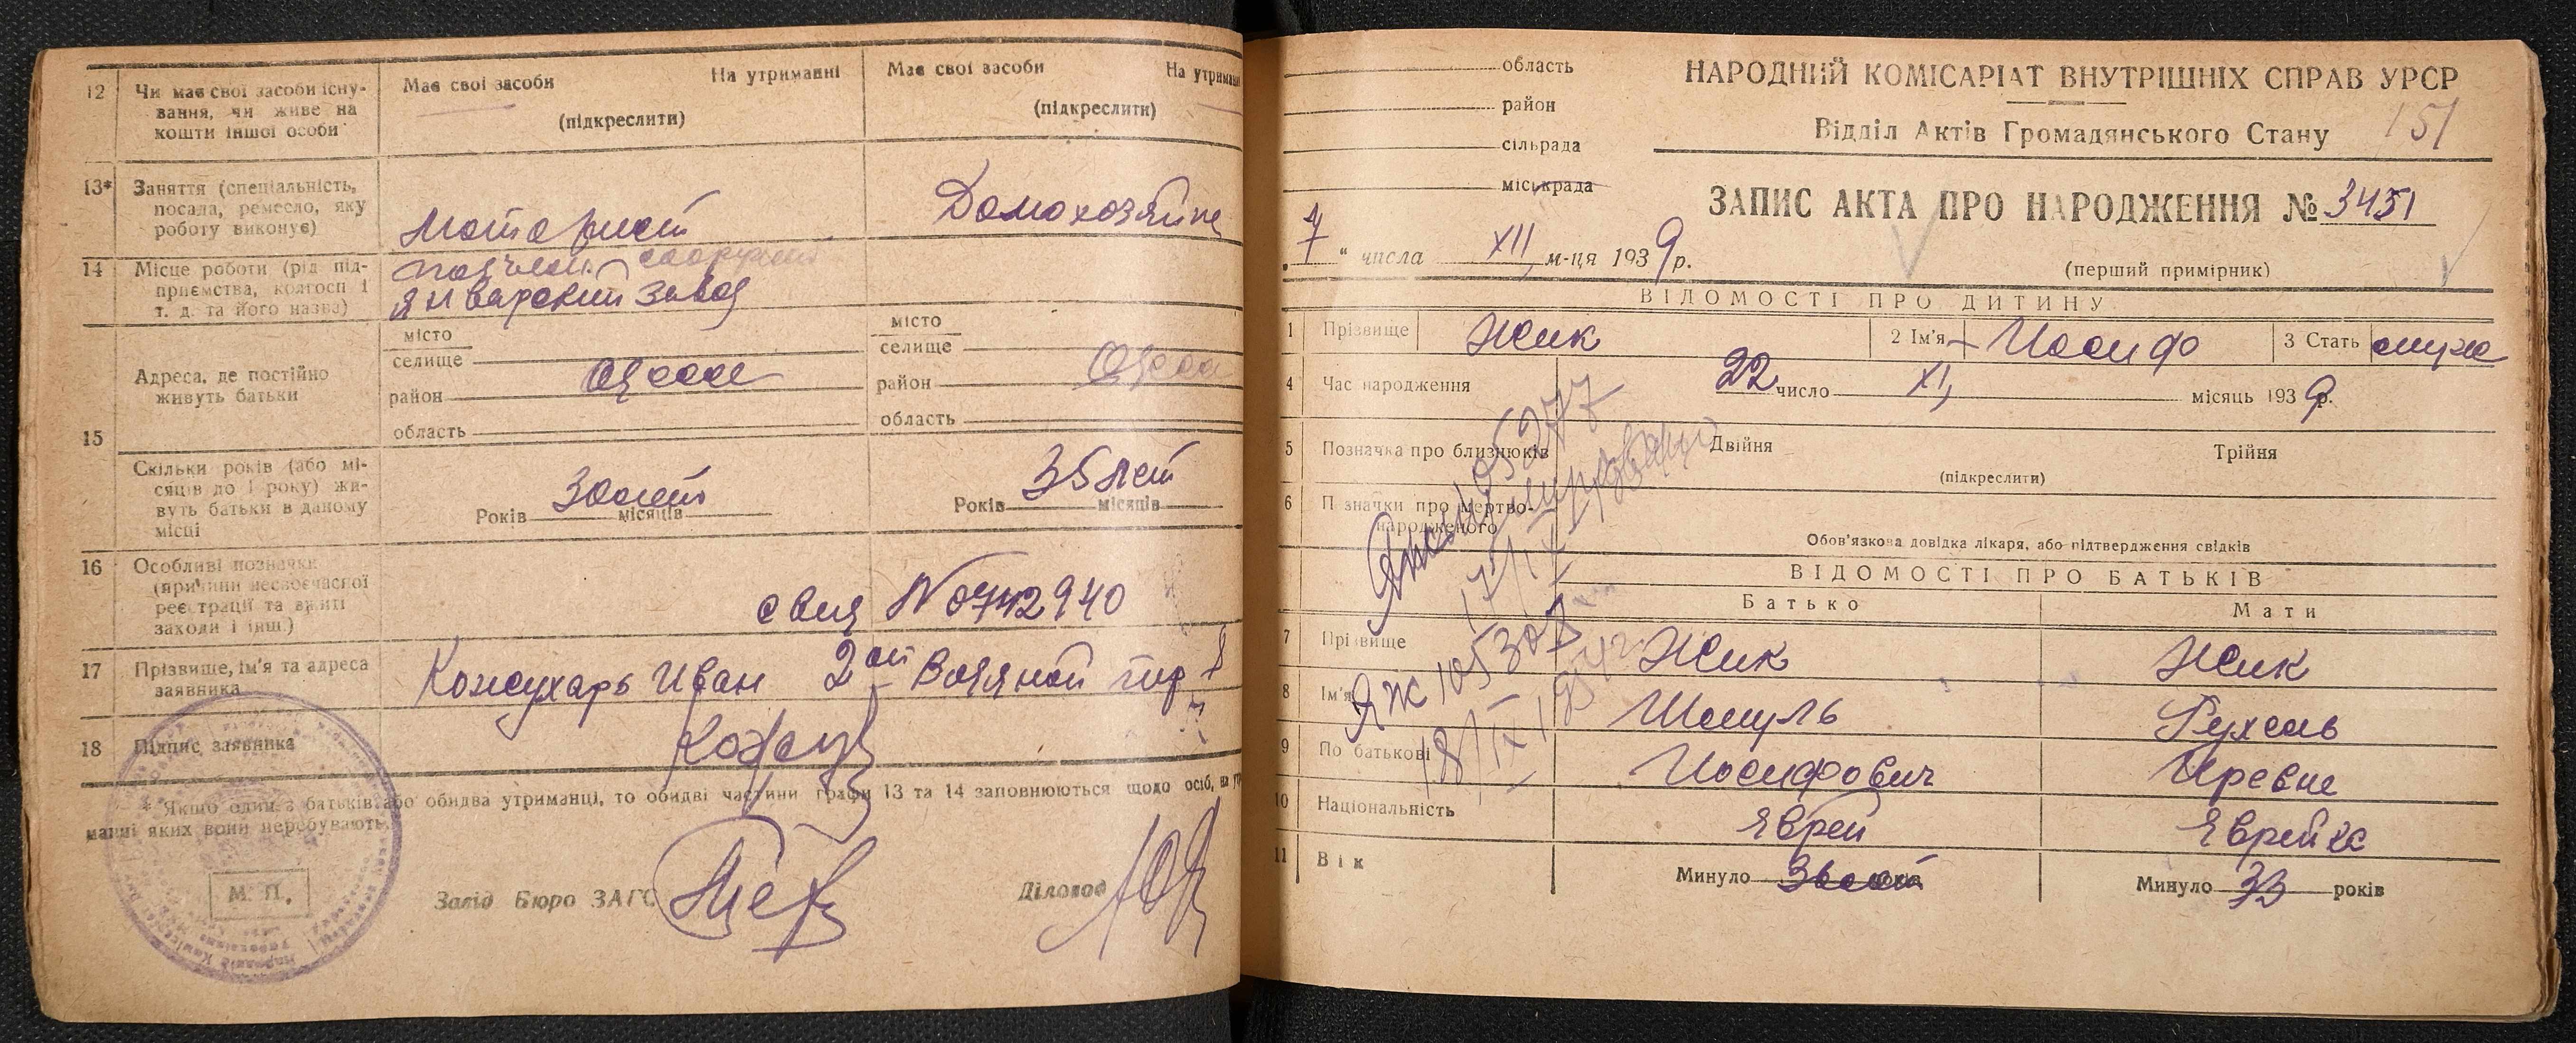 12 Чи має свої засоби існу-
вання, чи живе на
кошти іншої особи
Має свої засоби На утриманні
(підкреслити)
Має свої засоби На утриманні
(підкреслити)
13* Заняття (спеціальність,
посада, ремесло, яку
роботу виконує)
Моторист
Домохозяйка
14 Місце роботи (рід під-
приємства, колгосп і
т. д. та його назва)
Январский завод
15 Адреса, де постійно
живуть батьки
місто
селище
район Одесса
область
місто
селище
район Одесса
область
Скільки років (або мі-
сяців до 1 року) жи-
вуть батьки в даному
місці
Років 30 лет місяців
Років 35 лет місяців
16 Особливі позначки
(причини несвоєчасної
реєстрації та вжиті
заходи і інш.)
свид N 0742940
17 Прізвище, ім'я та адреса
заявника
Кожухарь Иван 2ой Водяной пер 8
18 Підпис заявника
* Якщо один з батьків або обидва утриманці, то обидві частини графи 13 та 14 заповнюються щодо осіб, на
манні яких вони перебувають.
М. П.
Завід Бюро ЗАГС
Діловод
область
район
сільрада
міськрада
НАРОДНИЙ КОМІСАРІАТ ВНУТРІШНІХ СПРАВ УРСР
Відділ Актів Громадянського Стану
151
ЗАПИС АКТА ПРО НАРОДЖЕННЯ № 3451
„7“ числа XII м-ця 1939 р.
(перший примірник)
ВІДОМОСТІ ПРО ДИТИНУ
1 Прізвище Жик 2 Ім'я Иосиф 3 Стать муж
4 Час народження 22 число XI місяць 1939 р.
5 Позначка про близнюків Двійня Трійня
(підкреслити)
6 Позначки про мертво-
народженого
Обов'язкова довідка лікаря, або підтвердження свідків
ВІДОМОСТІ ПРО БАТЬКІВ
Батько Мати
7 Прізвище Жик Жик
8 Ім'я Шмуль Рухель
9 По батькові Иосифович Иревна
10 Національність Еврей Еврейка
11 Вік Минуло 36 лет років Минуло 33 років
ЯЖ 105307